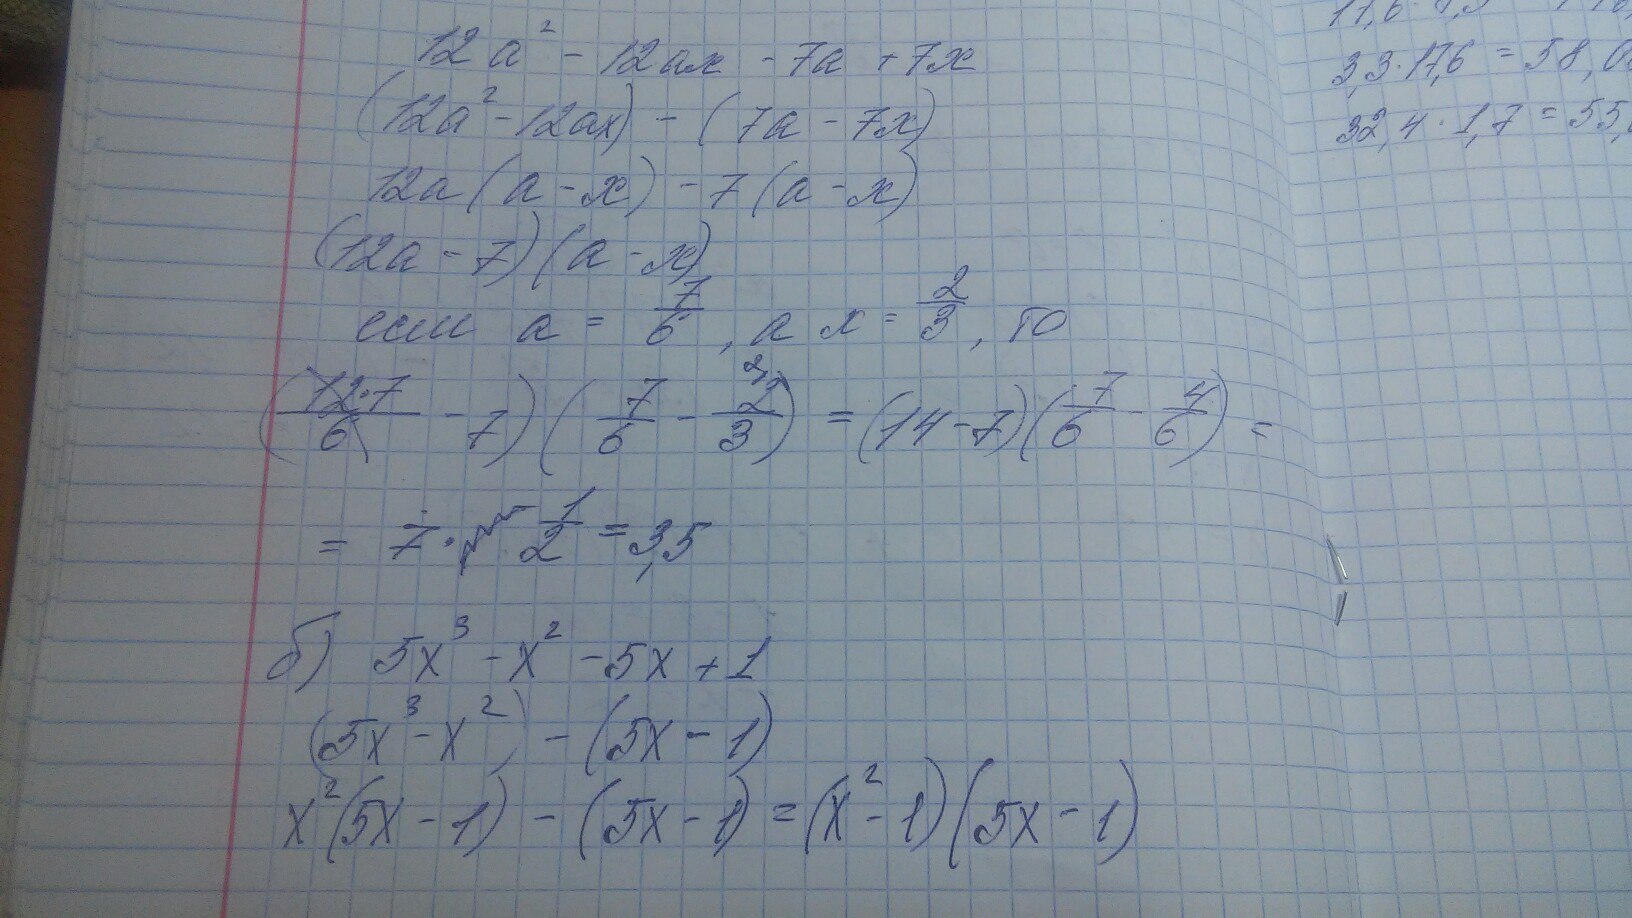 12a² - 12ax - 7a + 7x
(12a² - 12ax) - (7a - 7x)
12a(a - x) - 7(a - x)
(12a - 7)(a - x)
если a = 7/6, а x = 2/3, то
(12·7/6 - 7)(7/6 - 2/3) = (14 - 7)(7/6 - 4/6) =
= 7 · 1/2 = 3,5
б) 5x³ - x² - 5x + 1
(5x³ - x²) - (5x - 1)
x²(5x - 1) - (5x - 1) = (x² - 1)(5x - 1)
3,3·17,6 = 58,0
32,4·1,7 = 55,